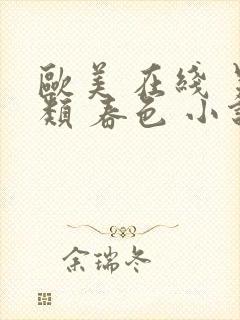 歐美 在綫 
類 春色 小
余瑞冬